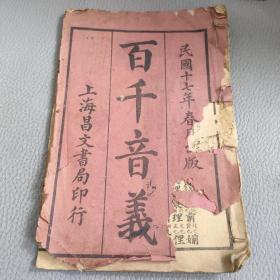 民國十七年春月版
百千音義
上海昌文書局印行
理
俚